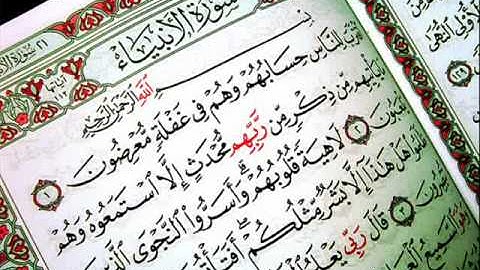 سُورَةُ الْأَنْبِيَاءِ
بِسْمِ اللَّهِ الرَّحْمَٰنِ الرَّحِيمِ
لِلنَّاسِ حِسَابُهُمْ وَهُمْ فِي غَفْلَةٍ مُعْرِضُونَ ١
مِنْ ذِكْرٍ مِنْ رَبِّهِمْ مُحْدَثٍ إِلَّا اسْتَمَعُوهُ وَهُمْ
٢ لَاهِيَةً قُلُوبُهُمْ وَأَسَرُّوا النَّجْوَى الَّذِينَ
هَلْ هَٰذَا إِلَّا بَشَرٌ مِثْلُكُمْ
٣ قَالَ رَبِّي يَعْلَمُ
السَّمِيعُ